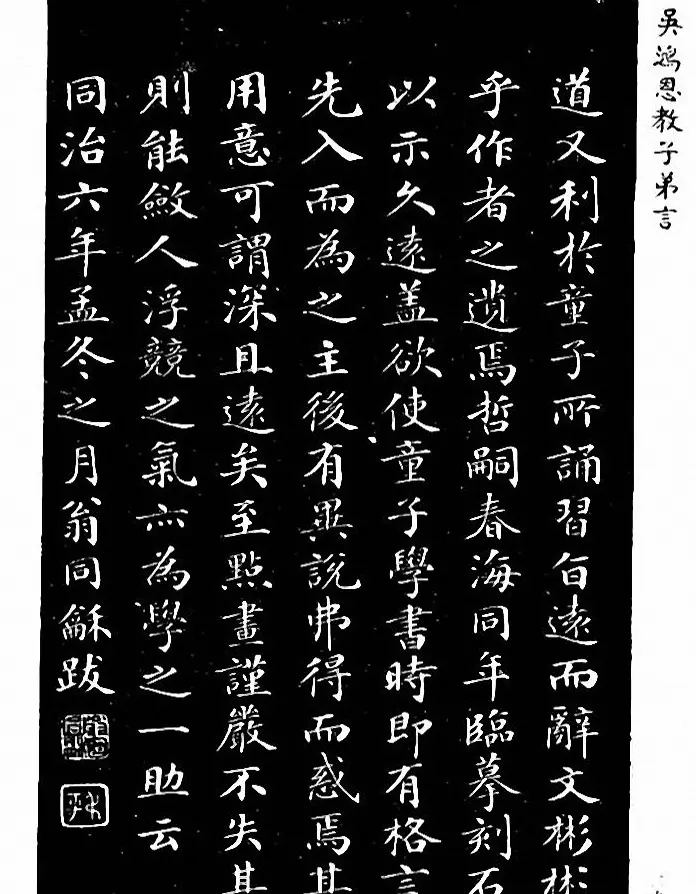 吳鴻恩教子弟言
道又利於童子所誦習旨遠而辭文彬彬
乎作者之遺焉哲嗣春海同年臨摹刻石
以示久遠盖欲使童子學書時即有格言
先入而為之主後有異說弗得而惑焉其
用意可謂深且遠矣至點畫謹嚴不失其
則能斂人浮競之氣亦為學之一助云
同治六年孟冬之月翁同龢跋